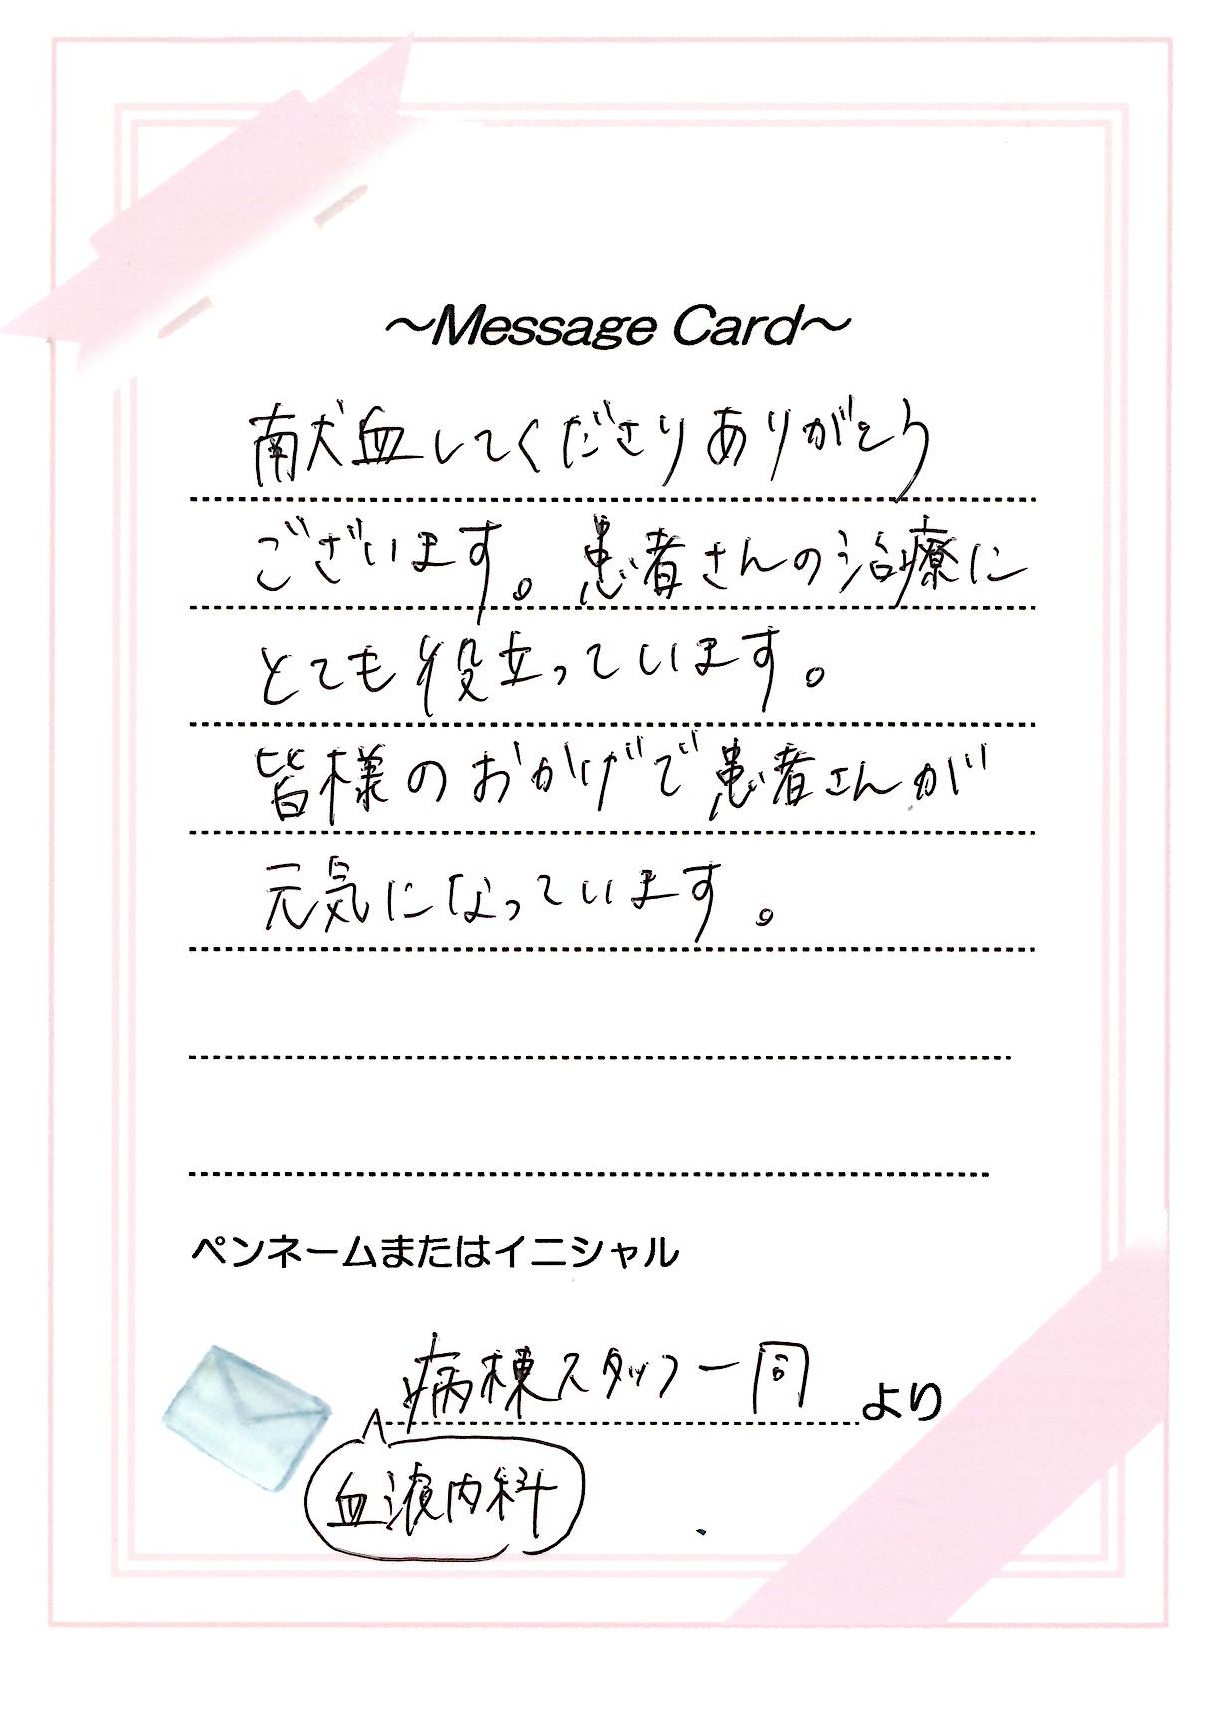 ～Message Card～
献血してくださりありがとう
ございます。患者さんの治療に
とても役立っています。
皆様のおかげで患者さんが
元気になっています。
ペンネームまたはイニシャル
病棟スタッフ一同 より
血液内科